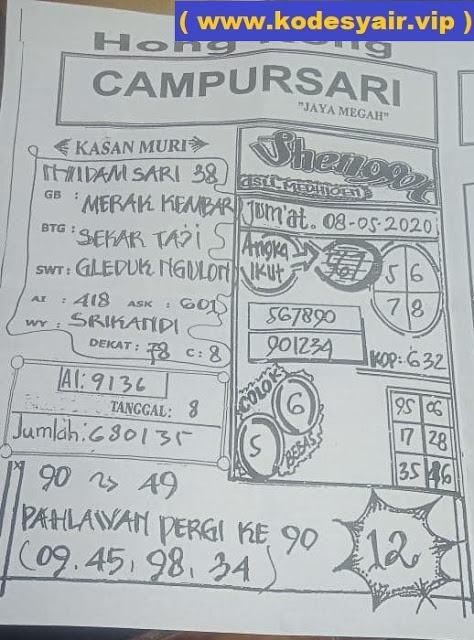 ( www.kodesyair.vip )
Hong Kong
CAMPURSARI
"JAYA MEGAH"
KASAN MURI
NYIDAM SARI 38
GB : MERAK KEMBAR
BTG : SEKAR TAJI
SWT : GLEDUK NGULON
AI : 418 ASK : 601
WY : SRIKANDI
DEKAT: 78 C: 8
AI: 9136
TANGGAL: 8
Jumlah: 680135
ASLI MEDIUOEN
Jum'at. 08-05-2020
Angka
IKUT
5 6
7 8
567890
901234
KOP: 632
COLOK
6
5
BEBAS
95 06
17 28
35 46
90 49
PAHLAWAN PERGI KE 90
(09. 45, 98, 34)
12